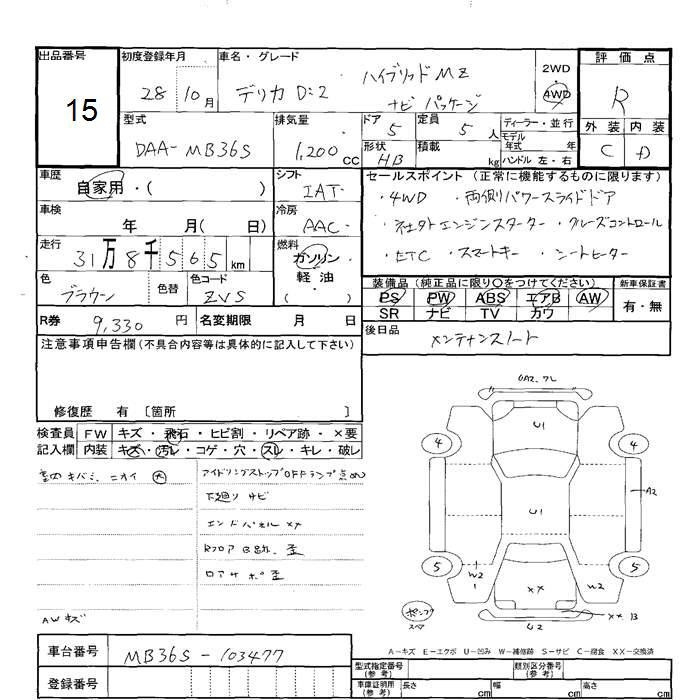 出品番号
15
初度登録年月
28 10月
車名・グレード
デリカ D:2
ハイブリッド MZ
ナビ パッケージ
2WD
4WD
評価点
R
外装 内装
C D
型式
DAA- MB36S
排気量
1,200 CC
ドア 5
形状 HB
定員 5 人
積載 kg
ディーラー・並行
モデル
年式 年
ハンドル 左・右
車歴
自家用・( )
シフト
IAT
セールスポイント (正常に機能するものに限ります)
・4WD ・両側パワースライドドア
・社外エンジンスターター ・クルーズコントロール
・ETC ・スマートキー ・シートヒーター
車検
年 月( 日)
冷房
AAC
走行
31万8千565 km
燃料
ガソリン
軽油
( )
色
ブラウン
色替
色コード
ZVS
装備品 (純正品に限り○をつけてください)
PS PW ABS エアB AW
SR ナビ TV カワ
新車保証書
有・無
R券 9,330 円
名変期限 月 日
後日品
メンテナンスノート
注意事項申告欄 (不具合内容等は具体的に記入して下さい)
修復歴 有 〔箇所 〕
検査員
記入欄
FW キズ・飛石・ヒビ割・リペア跡・×要
内装 キズ・汚レ・コゲ・穴・スレ・キレ・破レ
室内キバミ、ニオイ 大
アイドリングストップOFFランプ点め
下廻り サビ
エンドパネル XX
Rフロア 歪
ロアサポ 歪
AW キズ
UA2.ワレ
U1
4
4
A2
U1
5
5
W2
1
XX
W2
ポンプ
スペア
XX B
U2
A-キズ E-エクボ U-凹み W-補修跡 S-サビ C-腐食 XX-交換済
車台番号
MB36S - 103477
登録番号
型式指定番号
(参考)
類別区分番号
(参考)
車庫証明用
(参考)
長さ cm 幅 cm 高さ cm